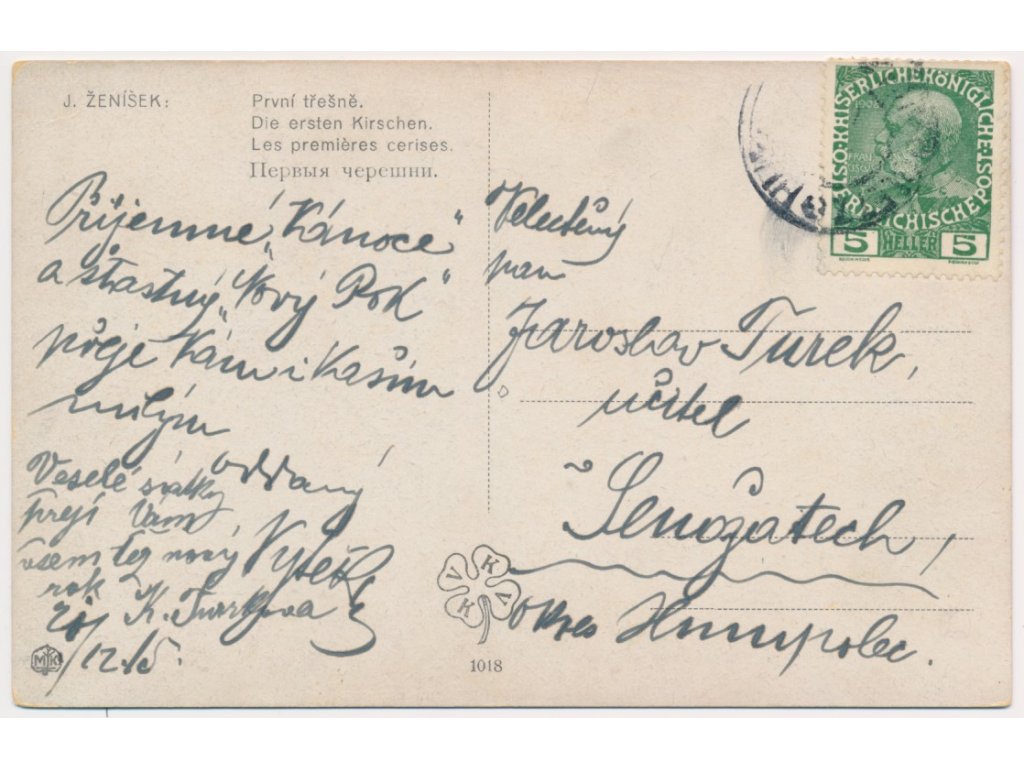 J. ŽENÍŠEK:
První třešně.
Die ersten Kirschen.
Les premières cerises.
Первыя черешни.
Příjemné „Vánoce“
a šťastný „Nový Rok“
přeje Vám i Vašim
milým
oddaný
Veselé svátky
přejí Vám
všem též nový
rok
K. Turkova
/12 15.
Velectěný
pan
Jaroslav Turek,
učitel
Šenožatech,
okres Humpolec.
KAISERLICHE KÖNIGLICHE
ÖSTERREICHISCHE POST
1908
5 HELLER 5
V K K V
MK
1018